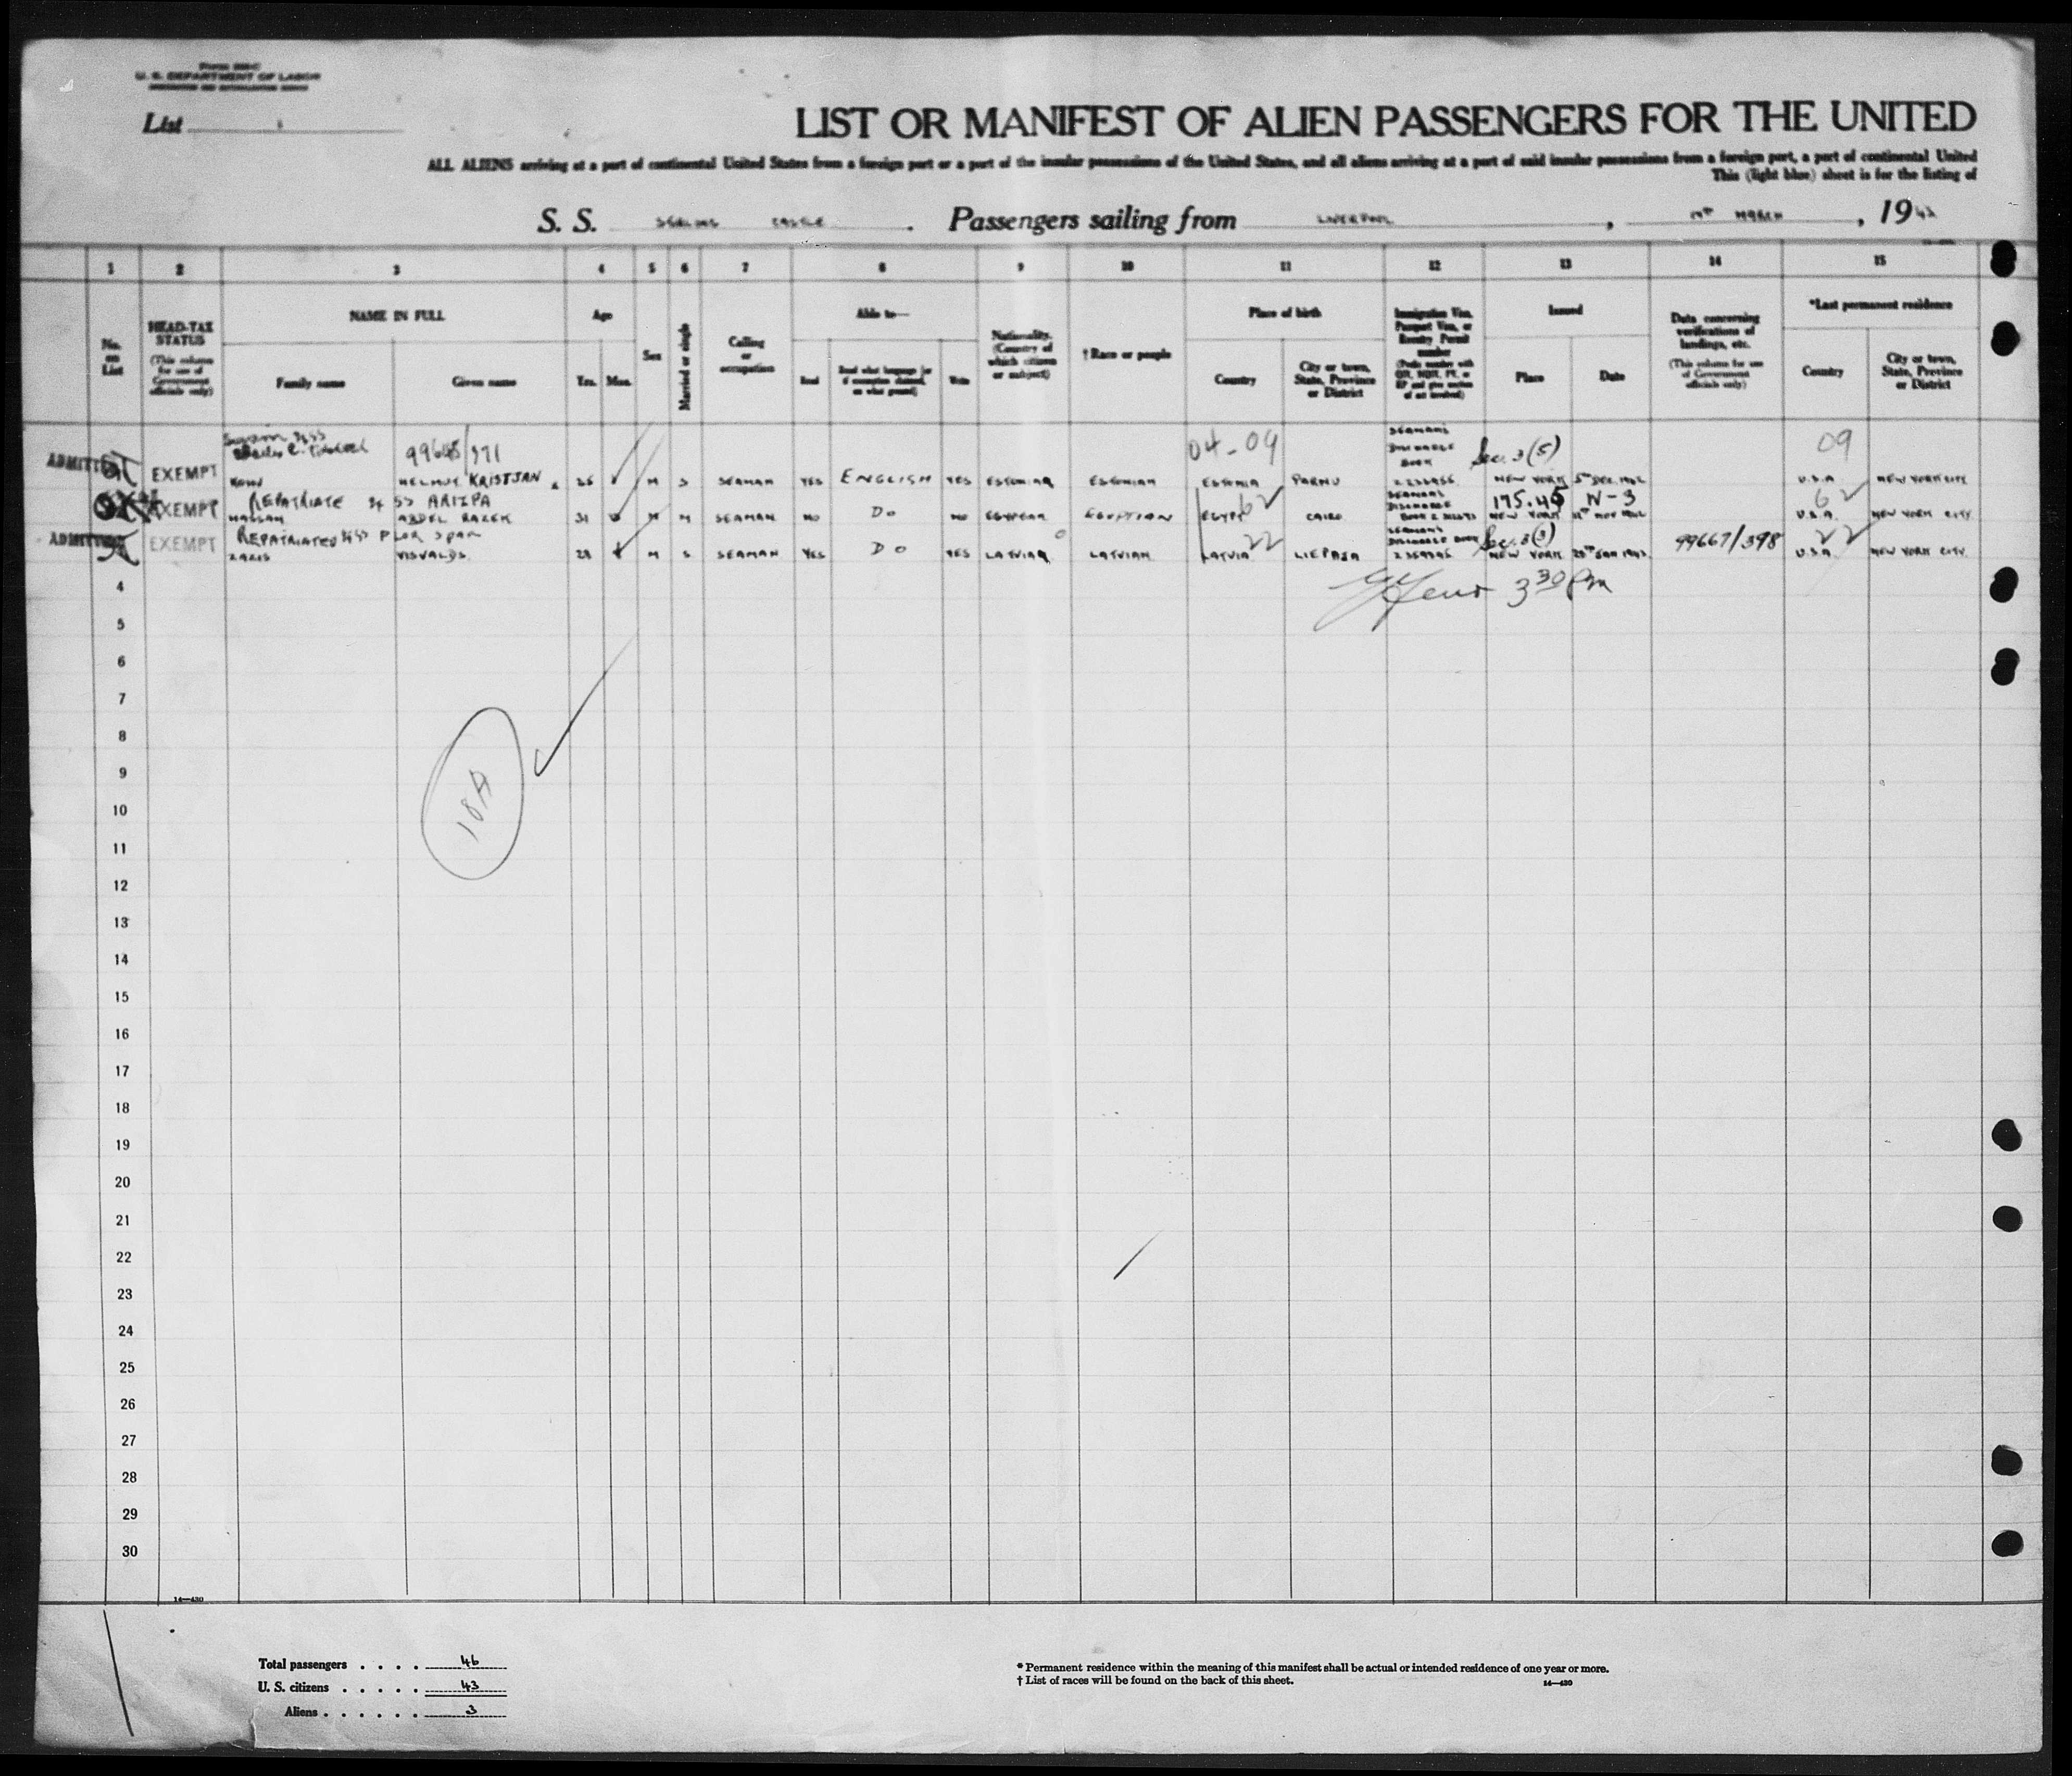 U. S. DEPARTMENT OF LABOR
List
LIST OR MANIFEST OF ALIEN PASSENGERS FOR THE UNITED
ALL ALIENS arriving at a port of continental United States from a foreign port or a port of the insular possessions of the United States, and all aliens arriving at a port of said insular possessions from a foreign port, a port of continental United
This (light blue) sheet is for the listing of
S. S. CASTLE . Passengers sailing from LIVERPOOL , MARCH , 19
1 2 3 4 5 6 7 8 9 10 11 12 13 14 15
No. on List
HEAD-TAX STATUS
(This column for use of Government officials only)
NAME IN FULL
Family name
Given name
Age
Yrs. Mos.
Sex
Married or single
Calling or occupation
Able to—
Read
Read what language [or if exemption claimed, on what ground]
Write
Nationality. (Country of which citizen or subject)
† Race or people
Place of birth
Country
City or town, State, Province or District
Immigration Visa, Passport Visa, or Reentry Permit number
Issued
Place
Date
Data concerning verifications of landings, etc.
(This column for use of Government officials only)
*Last permanent residence
Country
City or town, State, Province or District
04-09 SEAMAN'S DISCHARGE BOOK Sec. 3 (5) 09
ADMITTED EXEMPT HELMUT KRISTJAN M S SEAMAN YES ENGLISH YES ESTONIAN ESTONIAN ESTONIA PARNU NEW YORK 5TH DEC. 1942 U.S.A NEW YORK CITY
REPATRIATE SS ARIZPA 62 SEAMAN'S DISCHARGE 175.45 N-3 62
EXEMPT HASSAN ABDEL RAZEK 31 M M SEAMAN NO DO NO EGYPTIAN EGYPTION EGYPT CAIRO BOOK NEW YORK NOV 1942 U.S.A. NEW YORK CITY
REPATRIATED SS FLOR SPAR 22 SEAMAN'S DISCHARGE BOOK Sec. 3(5) 99667/398 22
ADMITTED EXEMPT VISVALDS. M S SEAMAN YES DO YES LATVIAN LATVIAN LATVIA LIEPAJA NEW YORK JAN 1943 U.S.A. NEW YORK CITY
4 3 30 Pm
5
6
7
8
9
10
18A
11
12
13
14
15
16
17
18
19
20
21
22
23
24
25
26
27
28
29
30
14—430
Total passengers . . . . 46
U. S. citizens . . . . . 43
Aliens . . . . . . 3
* Permanent residence within the meaning of this manifest shall be actual or intended residence of one year or more.
† List of races will be found on the back of this sheet.
14—430